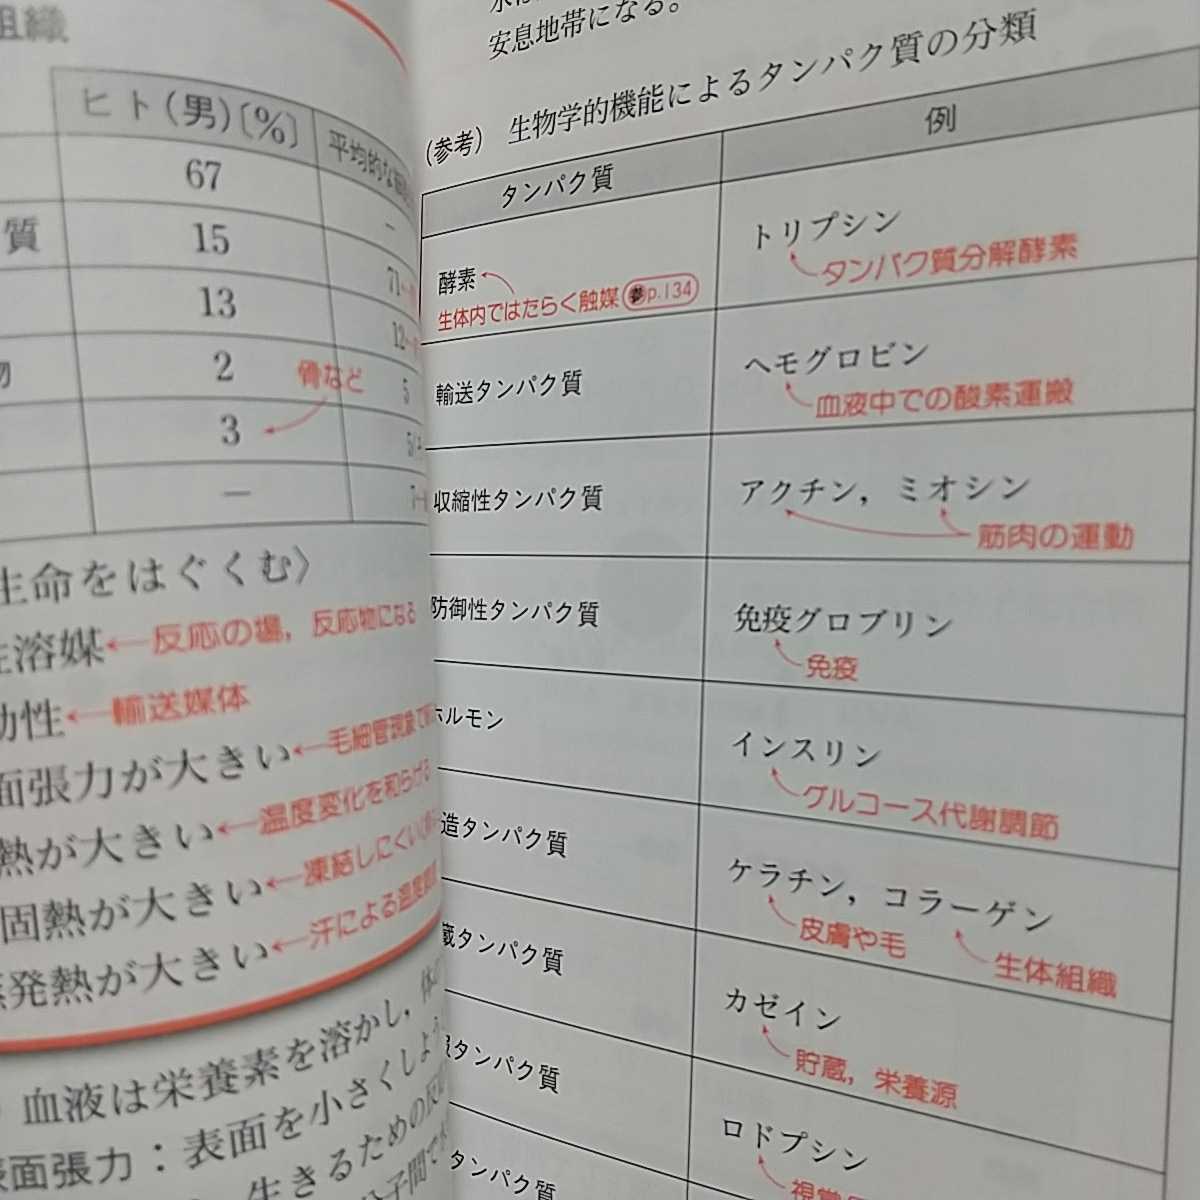 組織
ヒト(男)〔%〕
平均的な
67
—
質
15
71
13
12
物
2
骨など
5
3
5
—
7
生命をはぐくむ〉
溶媒←反応の場，反応物になる
動性←輸送媒体
面張力が大きい←毛細管現象で
熱が大きい←温度変化を和らげる
固熱が大きい←凍結しにくい
発熱が大きい←汗による温度調
血液は栄養素を溶かし，体
表面張力：表面を小さくしよう
生きるための反
分子間で水
安息地帯になる。
(参考) 生物学的機能によるタンパク質の分類
タンパク質
例
酵素
生体内ではたらく触媒 参p.134
トリプシン
タンパク質分解酵素
輸送タンパク質
ヘモグロビン
血液中での酸素運搬
収縮性タンパク質
アクチン，ミオシン
筋肉の運動
防御性タンパク質
免疫グロブリン
免疫
ホルモン
インスリン
グルコース代謝調節
造タンパク質
ケラチン，コラーゲン
皮膚や毛
生体組織
蔵タンパク質
カゼイン
貯蔵，栄養源
タンパク質
ロドプシン
視覚
タンパク質